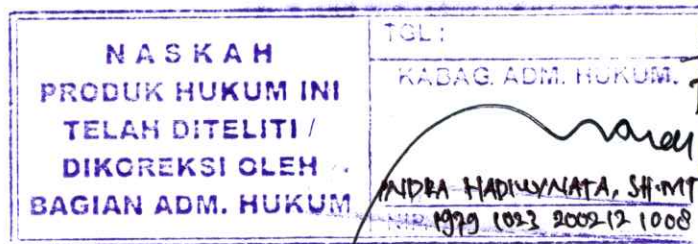 NASKAH
PRODUK HUKUM INI
TELAH DITELITI /
DIKOREKSI OLEH
BAGIAN ADM. HUKUM
TGL :
KABAG. ADM. HUKUM.
INDRA HADIWYNATA, SH.MT
NIP. 1979 1023 200212 1008